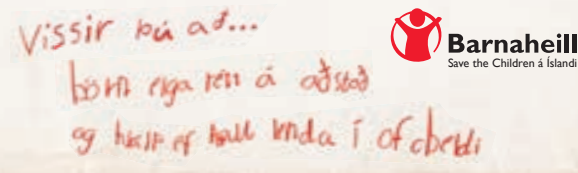 Vissir þú að...
börn eiga rétt á aðstoð
og hjálp ef þau lenda í ofbeldi
Barnaheill
Save the Children á Íslandi